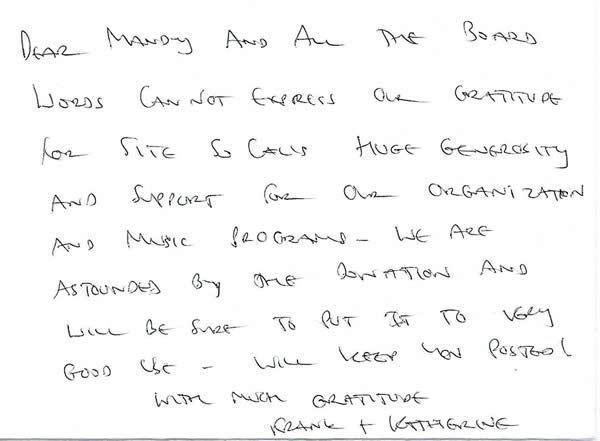 Dear Mandy and All the Board
Words cannot express our gratitude
for Site So Cal's huge generosity
and support for our organization
and music programs - we are
astounded by the donation and
will be sure to put it to very
good use - will keep you posted!
with much gratitude
Frank + Katherine